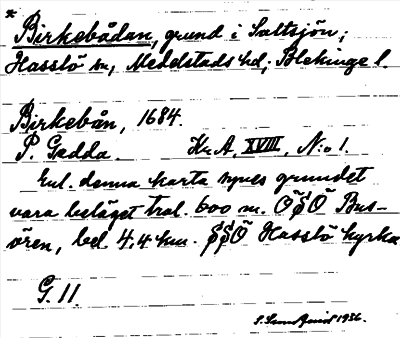 * Birkebådan, grund i Saltsjön;
Hasslö sn, Medelstads hd; Blekinge l.
Birkebån, 1684.
P. Gedda. Kr.A. XVIII, N:o 1.
Enl. denna karta synes grundet
vara beläget trol. 600 m. OSO Bus-
ören, bel. 4,4 km. SSO Hasslö kyrka
G. 11.
1936.